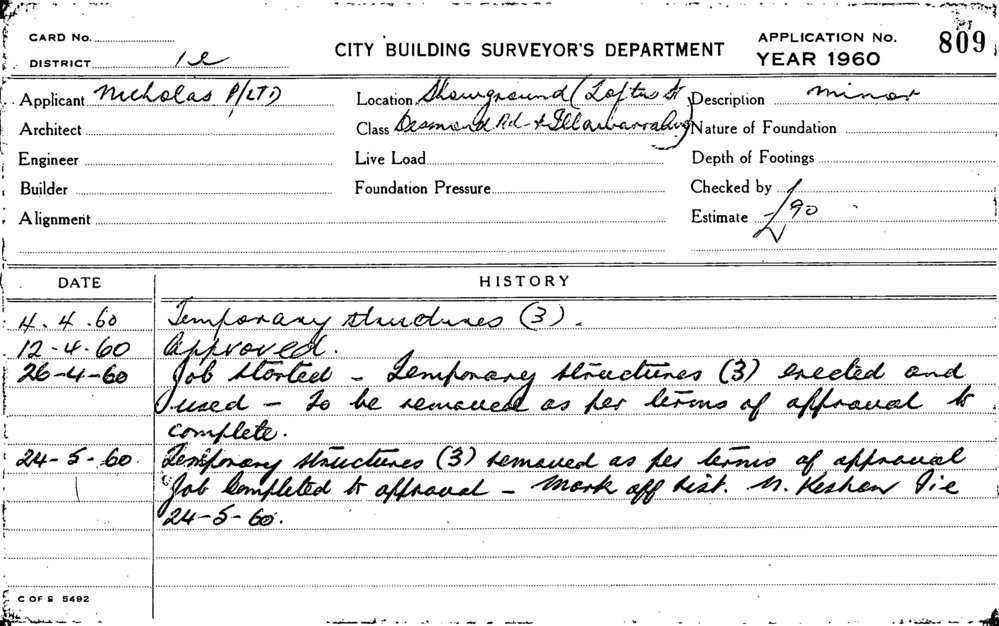 CARD No.
DISTRICT 1e
CITY BUILDING SURVEYOR'S DEPARTMENT
APPLICATION No. 809
YEAR 1960
Applicant Nicholas P/LTD
Location Showground (Loftus St
Description minor
Architect
Class Desmond Rd - & Illawarra
Nature of Foundation
Engineer
Live Load
Depth of Footings
Builder
Foundation Pressure
Checked by
Alignment
Estimate £90
DATE HISTORY
4.4.60 Temporary structures (3).
12-4-60 Approved.
26-4-60 Job started - Temporary structures (3) erected and
used - To be removed as per terms of approval to
complete.
24-5-60. Temporary structures (3) removed as per terms of approval
Job Completed to approval - Mark off Dist. N. Keshan
24-5-60.
C OF S 5492